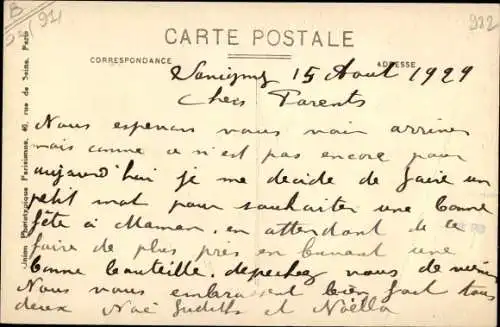 B
922
CARTE POSTALE
CORRESPONDANCE
ADRESSE
Union Phototypique Parisienne, 40, rue de Seine, Paris
Savigny 15 Aout 1929
Chers Parents
Nous esperions vous voir arriver
mais comme ce n'est pas encore pour
aujourd'hui je me decide de faire un
petit mot pour souhaiter une bonne
fête à Maman. en attendant de le
faire de plus près en buvant une
bonne bouteille. depechez vous de venir
Nous vous embrassent bien fort tous
deux Noé Judith et Noëlla